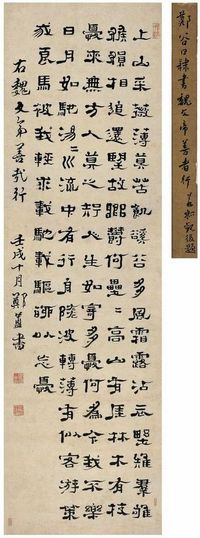 鄭谷口隸書魏文帝善哉行
上山采薇薄莫苦飢谿谷多風霜露沾衣野雉羣雊
猨猴相追還望故鄉鬱何壘〻高山有崖林木有枝
憂來無方人莫之知人生如寄多憂何為今我不樂
日月如馳湯〻川流中有行舟隨波轉薄有似客游策
我良馬被我輕裘載馳載驅聊以忘憂
右魏文帝善哉行 壬戌十月鄭簠書